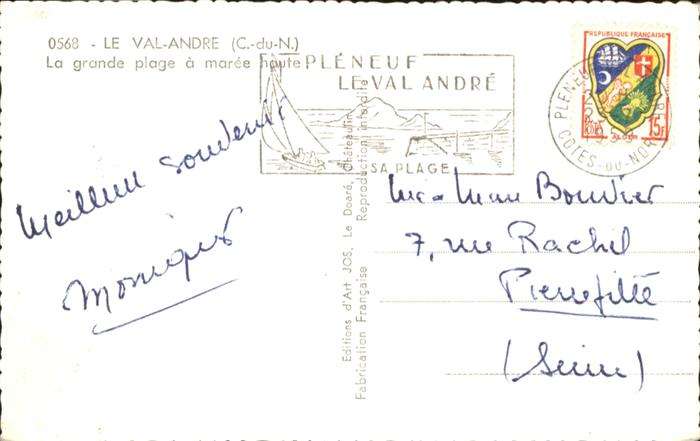 0568 - LE VAL-ANDRE (C.-du-N.)
La grande plage à marée haute
PLÉNEUF
LE VAL ANDRÉ
SA PLAGE
REPUBLIQUE FRANÇAISE
15F
ALGER
PLENEUF
COTES-DU-NORD
Meilleur souvenir
Monique
Editions d'Art JOS, Le Doaré, Châteaulin
Reproduction interdite
Fabrication Française
Bouvier
7, rue Rachel
Pierrefitte
(Seine)